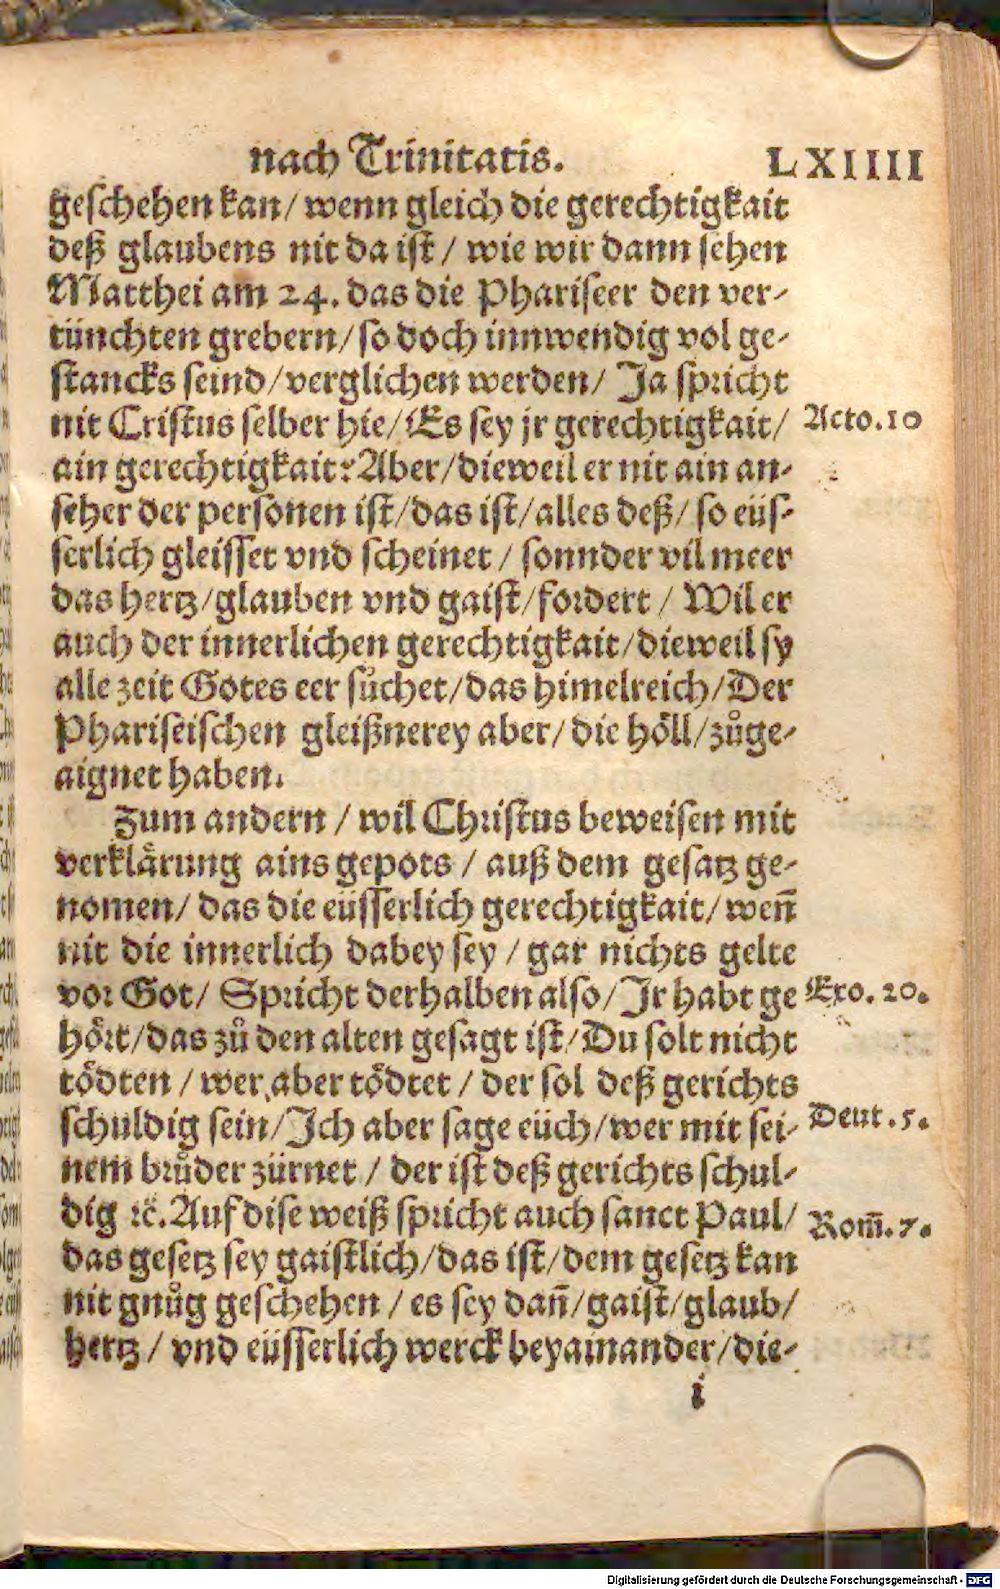 nach Trinitatis. LXIIII
geschehen kan/ wenn gleich die gerechtigkait
deß glaubens nit da ist / wie wir dann sehen
Matthei am 24. das die Phariseer den ver-
tünchten grebern/ so doch innwendig vol ge-
stancks seind/verglichen werden/ Ja spricht
nit Cristus selber hie/ Es sey jr gerechtigkait/
Acto.10
ain gerechtigkait? Aber/dieweil er nit ain an-
seher der personen ist/das ist/alles deß/ so eüs-
serlich gleisset vnd scheinet / sonnder vil meer
das hertz/glauben vnd gaist/fordert / Wil er
auch der innerlichen gerechtigkait/dieweil sy
alle zeit Gotes eer sůchet/das himelreich/Der
Phariseischen gleißnerey aber/ die höll/zůge-
aignet haben.
Zum andern / wil Christus beweisen mit
verklärung ains gepots / auß dem gesatz ge-
nomen/ das die eüsserlich gerechtigkait/ weñ
nit die innerlich dabey sey / gar nichts gelte
vor Got/ Spricht derhalben also/Jr habt ge
Exo. 20.
hört/das zů den alten gesagt ist/Du solt nicht
tödten / wer aber tödtet / der sol deß gerichts
schuldig sein/Ich aber sage eüch/wer mit sei-
Deut.5.
nem brůder zürnet / der ist deß gerichts schul-
dig ꝛc. Auf dise weiß spricht auch sanct Paul/
Rom̃.7.
das gesetz sey gaistlich/das ist/dem gesetz kan
nit gnůg geschehen / es sey dañ/gaist/glaub/
hertz / vnd eüsserlich werck beyainander/die-
i
Digitalisierung gefördert durch die Deutsche Forschungsgemeinschaft - DFG